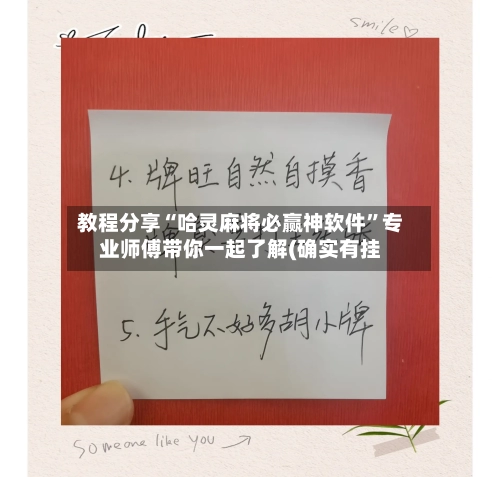 smile
4.牌旺自然自摸香
教程分享“哈灵麻将必赢神软件”专
业师傅带你一起了解(确实有挂
5.手气不好多胡小牌
Someone like you